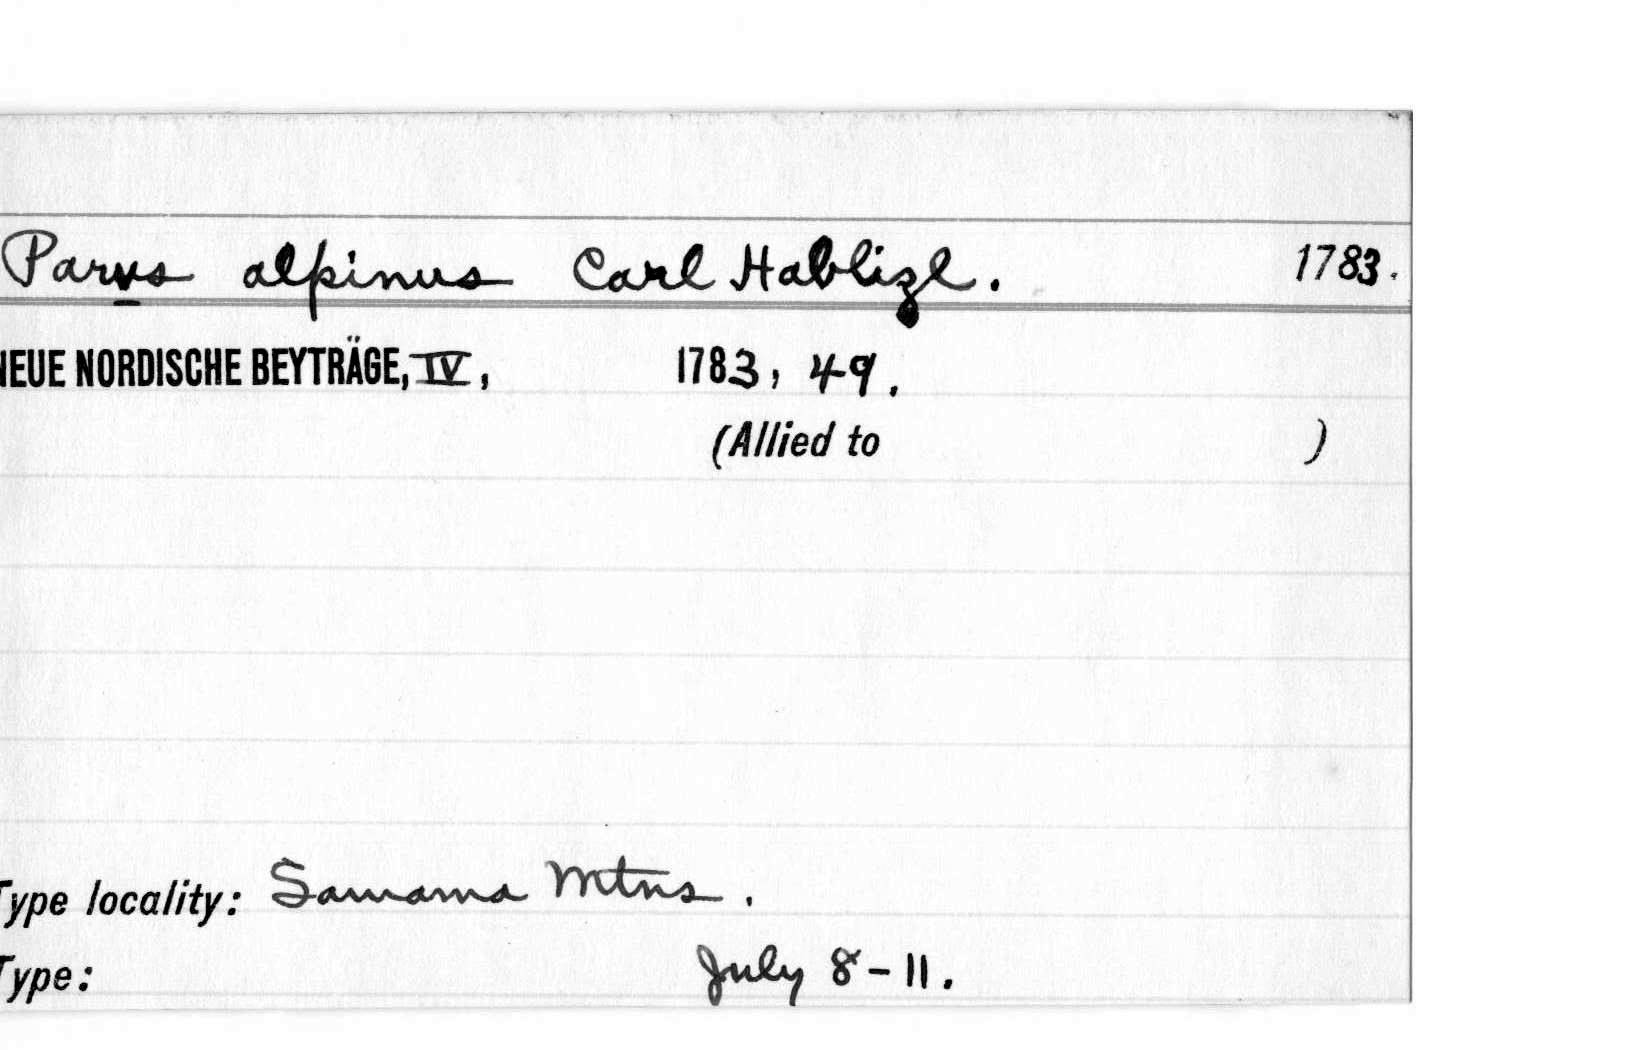 Parvs alpinus Carl Hablizl. 1783.
NEUE NORDISCHE BEYTRÄGE, IV, 1783, 49.
(Allied to )
Type locality: Samama Mtns.
Type: July 8-11.